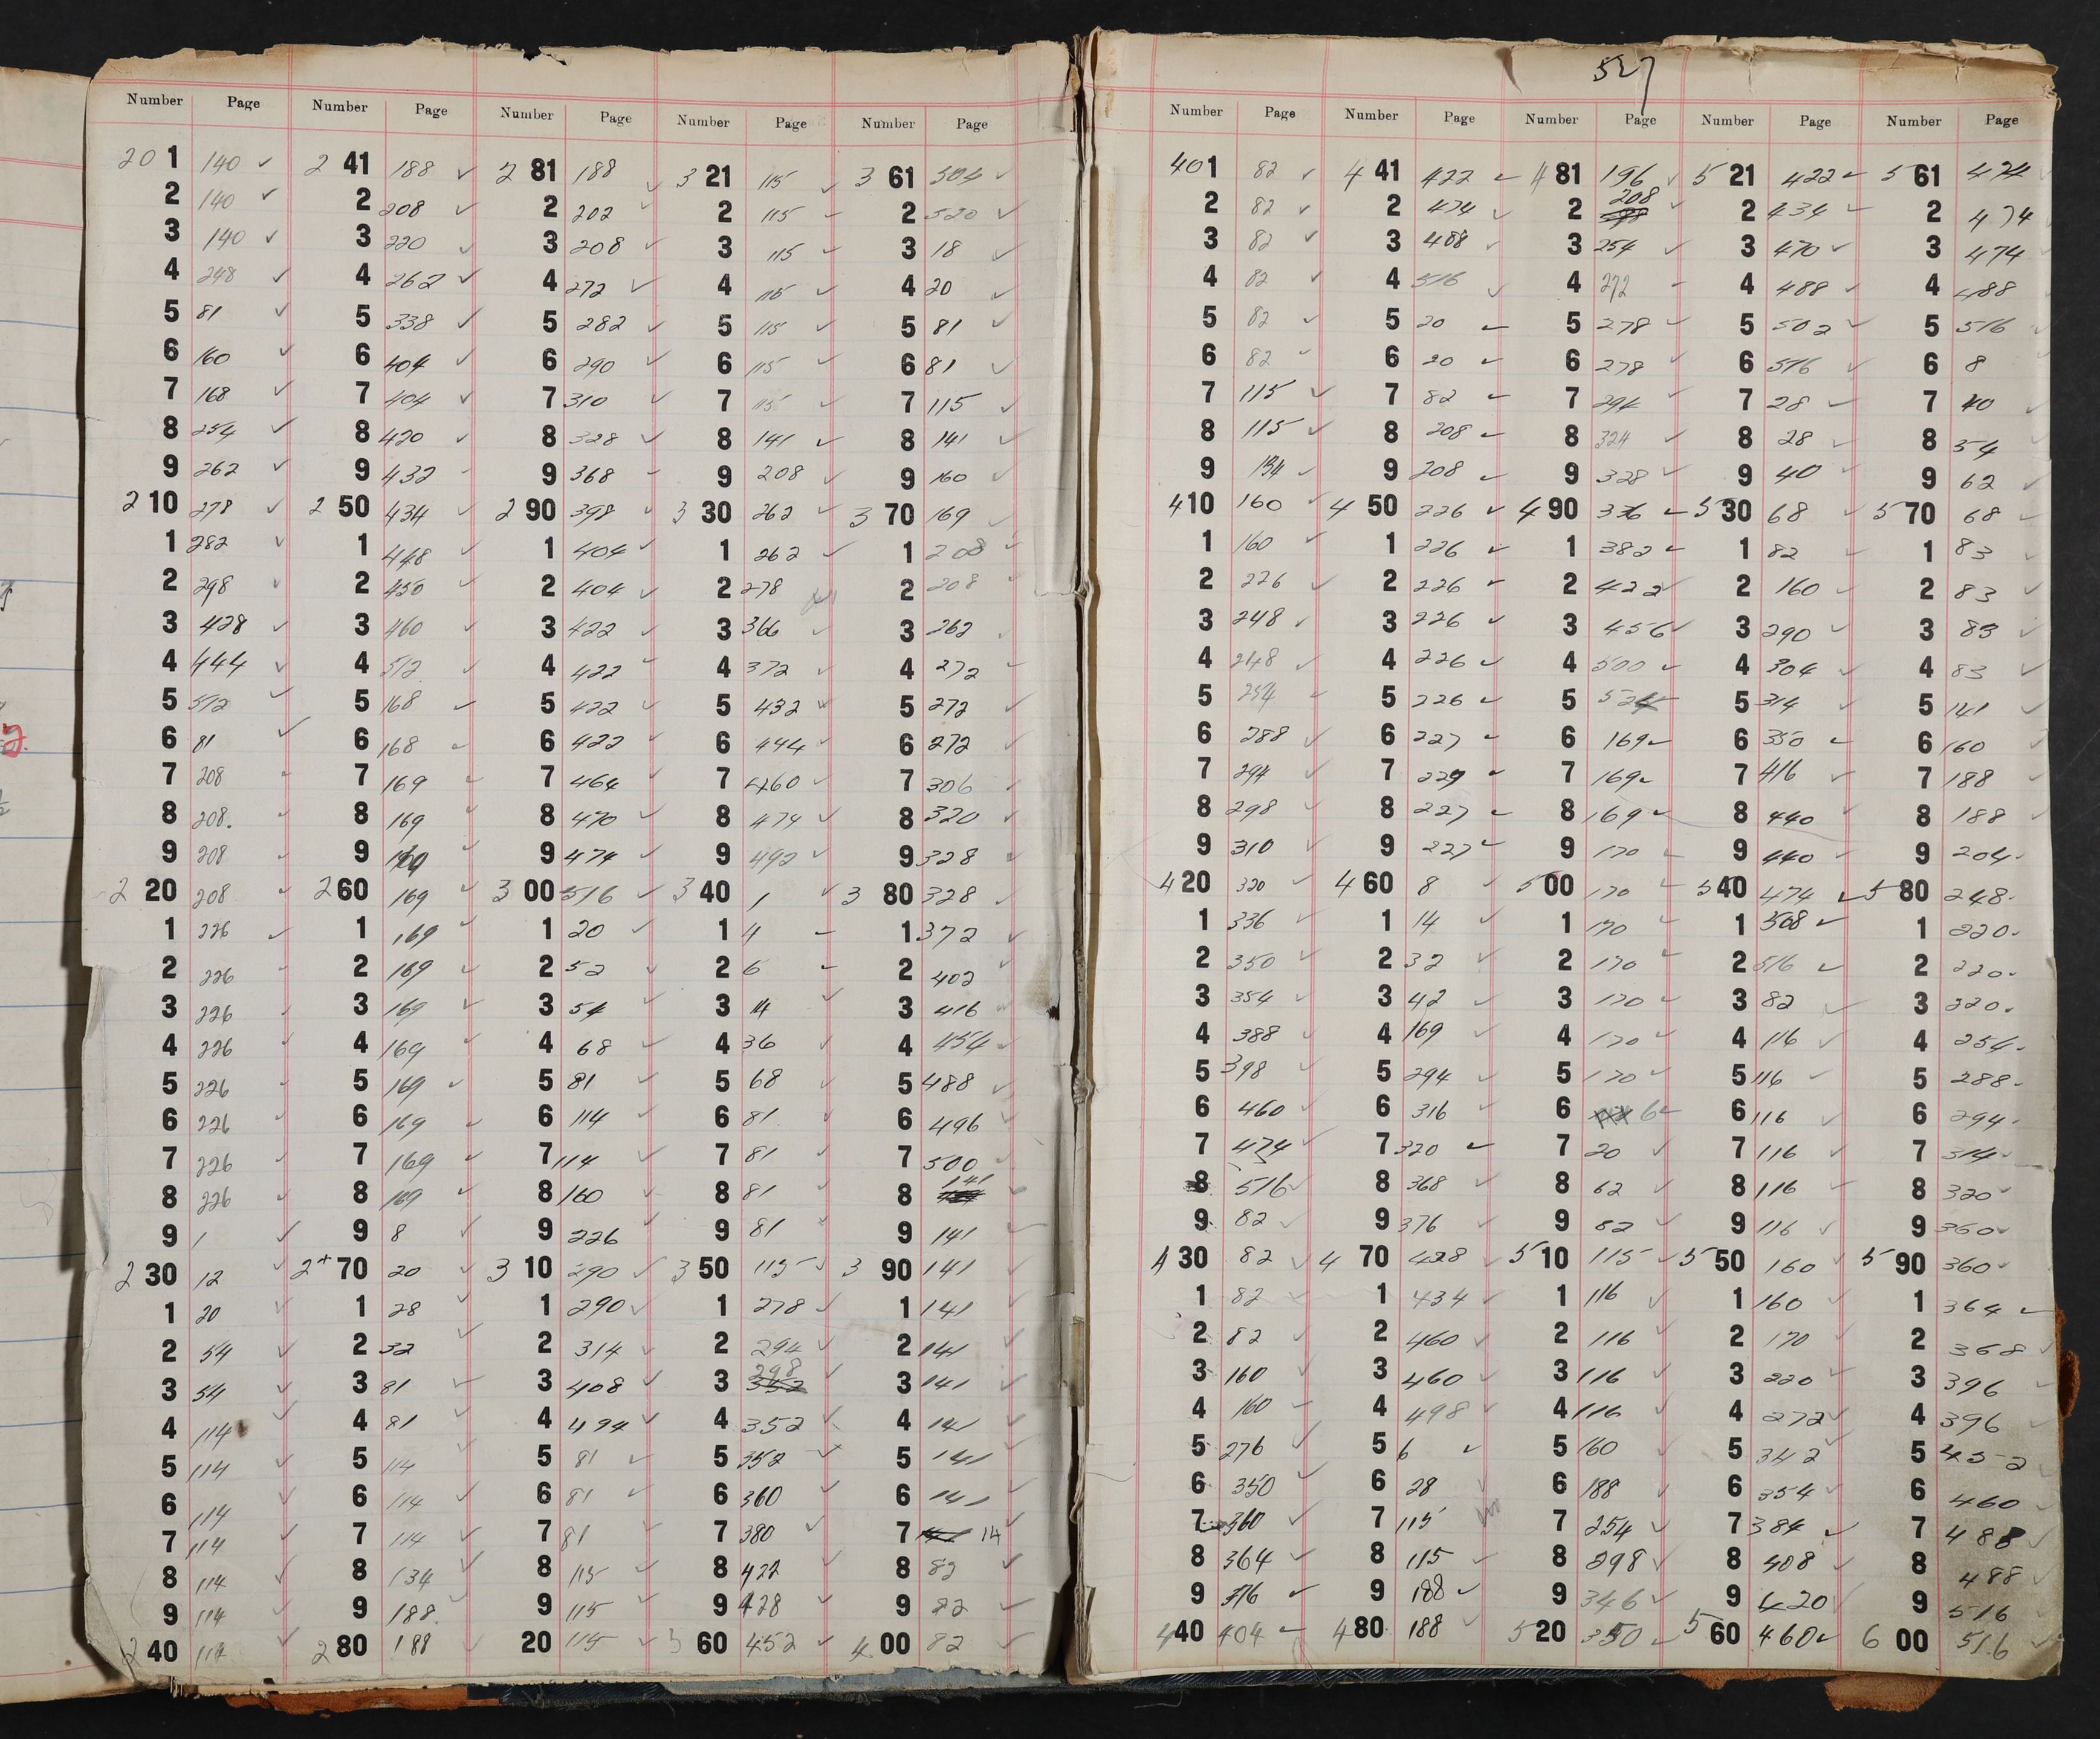 Number Page Number Page Number Page Number Page Number Page
201 140 241 188 281 188 321 115 361 504
2 140 2 208 2 202 2 115 2 520
3 140 3 220 3 208 3 115 3 18
4 248 4 262 4 272 4 115 4 20
5 81 5 338 5 282 5 115 5 81
6 160 6 404 6 290 6 115 6 81
7 168 7 404 7 310 7 115 7 115
8 254 8 420 8 328 8 141 8 141
9 262 9 432 9 368 9 208 9 160
210 278 250 434 290 398 330 262 370 169
1 282 1 448 1 404 1 262 1 208
2 298 2 450 2 404 2 278 2 208
3 428 3 460 3 422 3 366 3 262
4 444 4 512 4 422 4 372 4 272
5 512 5 168 5 422 5 432 5 272
6 81 6 168 6 422 6 444 6 272
7 208 7 169 7 464 7 460 7 306
8 208. 8 169 8 470 8 474 8 320
9 208 9 169 9 474 9 492 9 328
220 208 260 169 300 516 340 1 380 328
1 226 1 169 1 20 1 4 1 372
2 226 2 169 2 52 2 6 2 402
3 226 3 169 3 54 3 14 3 416
4 226 4 169 4 68 4 36 4 454
5 226 5 169 5 81 5 68 5 488
6 226 6 169 6 114 6 81 6 496
7 226 7 169 7 114 7 81 7 500
8 226 8 169 8 160 8 81 8 141
9 1 9 8 9 226 9 81 9 141
230 12 270 20 310 290 350 115 390 141
1 20 1 28 1 290 1 278 1 141
2 54 2 32 2 314 2 294 2 141
3 54 3 81 3 408 3 298 3 141
4 114 4 81 4 494 4 352 4 141
5 114 5 114 5 81 5 352 5 141
6 114 6 114 6 81 6 360 6 141
7 114 7 114 7 81 7 380 7 14
8 114 8 134 8 115 8 422 8 82
9 114 9 188. 9 115 9 428 9 82
240 114 280 188 20 115 360 452 400 82
527
Number Page Number Page Number Page Number Page Number Page
401 82 441 422 481 196 521 422 561 474
2 82 2 474 2 208 2 434 2 474
3 82 3 488 3 254 3 470 3 474
4 82 4 516 4 272 4 488 4 488
5 82 5 20 5 278 5 502 5 516
6 82 6 20 6 278 6 516 6 8
7 115 7 82 7 294 7 28 7 40
8 115 8 208 8 324 8 28 8 54
9 134 9 208 9 328 9 40 9 62
410 160 450 226 490 336 530 68 570 68
1 160 1 226 1 382 1 82 1 83
2 226 2 226 2 422 2 160 2 83
3 248 3 226 3 456 3 290 3 83
4 248 4 226 4 500 4 304 4 83
5 254 5 226 5 524 5 314 5 141
6 288 6 227 6 169 6 350 6 160
7 294 7 227 7 169 7 416 7 188
8 298 8 227 8 169 8 440 8 188
9 310 9 227 9 170 9 440 9 204
420 320 460 8 500 170 540 474 580 248
1 336 1 14 1 170 1 508 1 220
2 350 2 32 2 170 2 516 2 220
3 354 3 42 3 170 3 82 3 220
4 388 4 169 4 170 4 116 4 254
5 398 5 294 5 170 5 116 5 288
6 460 6 316 6 6 6 116 6 294
7 474 7 320 7 20 7 116 7 314
8 516 8 368 8 62 8 116 8 320
9 82 9 376 9 82 9 116 9 360
430 82 470 428 510 115 550 160 590 360
1 82 1 434 1 116 1 160 1 364
2 82 2 460 2 116 2 170 2 368
3 160 3 460 3 116 3 220 3 396
4 160 4 498 4 116 4 272 4 396
5 276 5 6 5 160 5 342 5 452
6 350 6 28 6 188 6 354 6 460
7 360 7 115 7 254 7 384 7 488
8 364 8 115 8 298 8 408 8 488
9 376 9 188 9 346 9 420 9 516
440 404 480 188 520 350 560 460 600 516